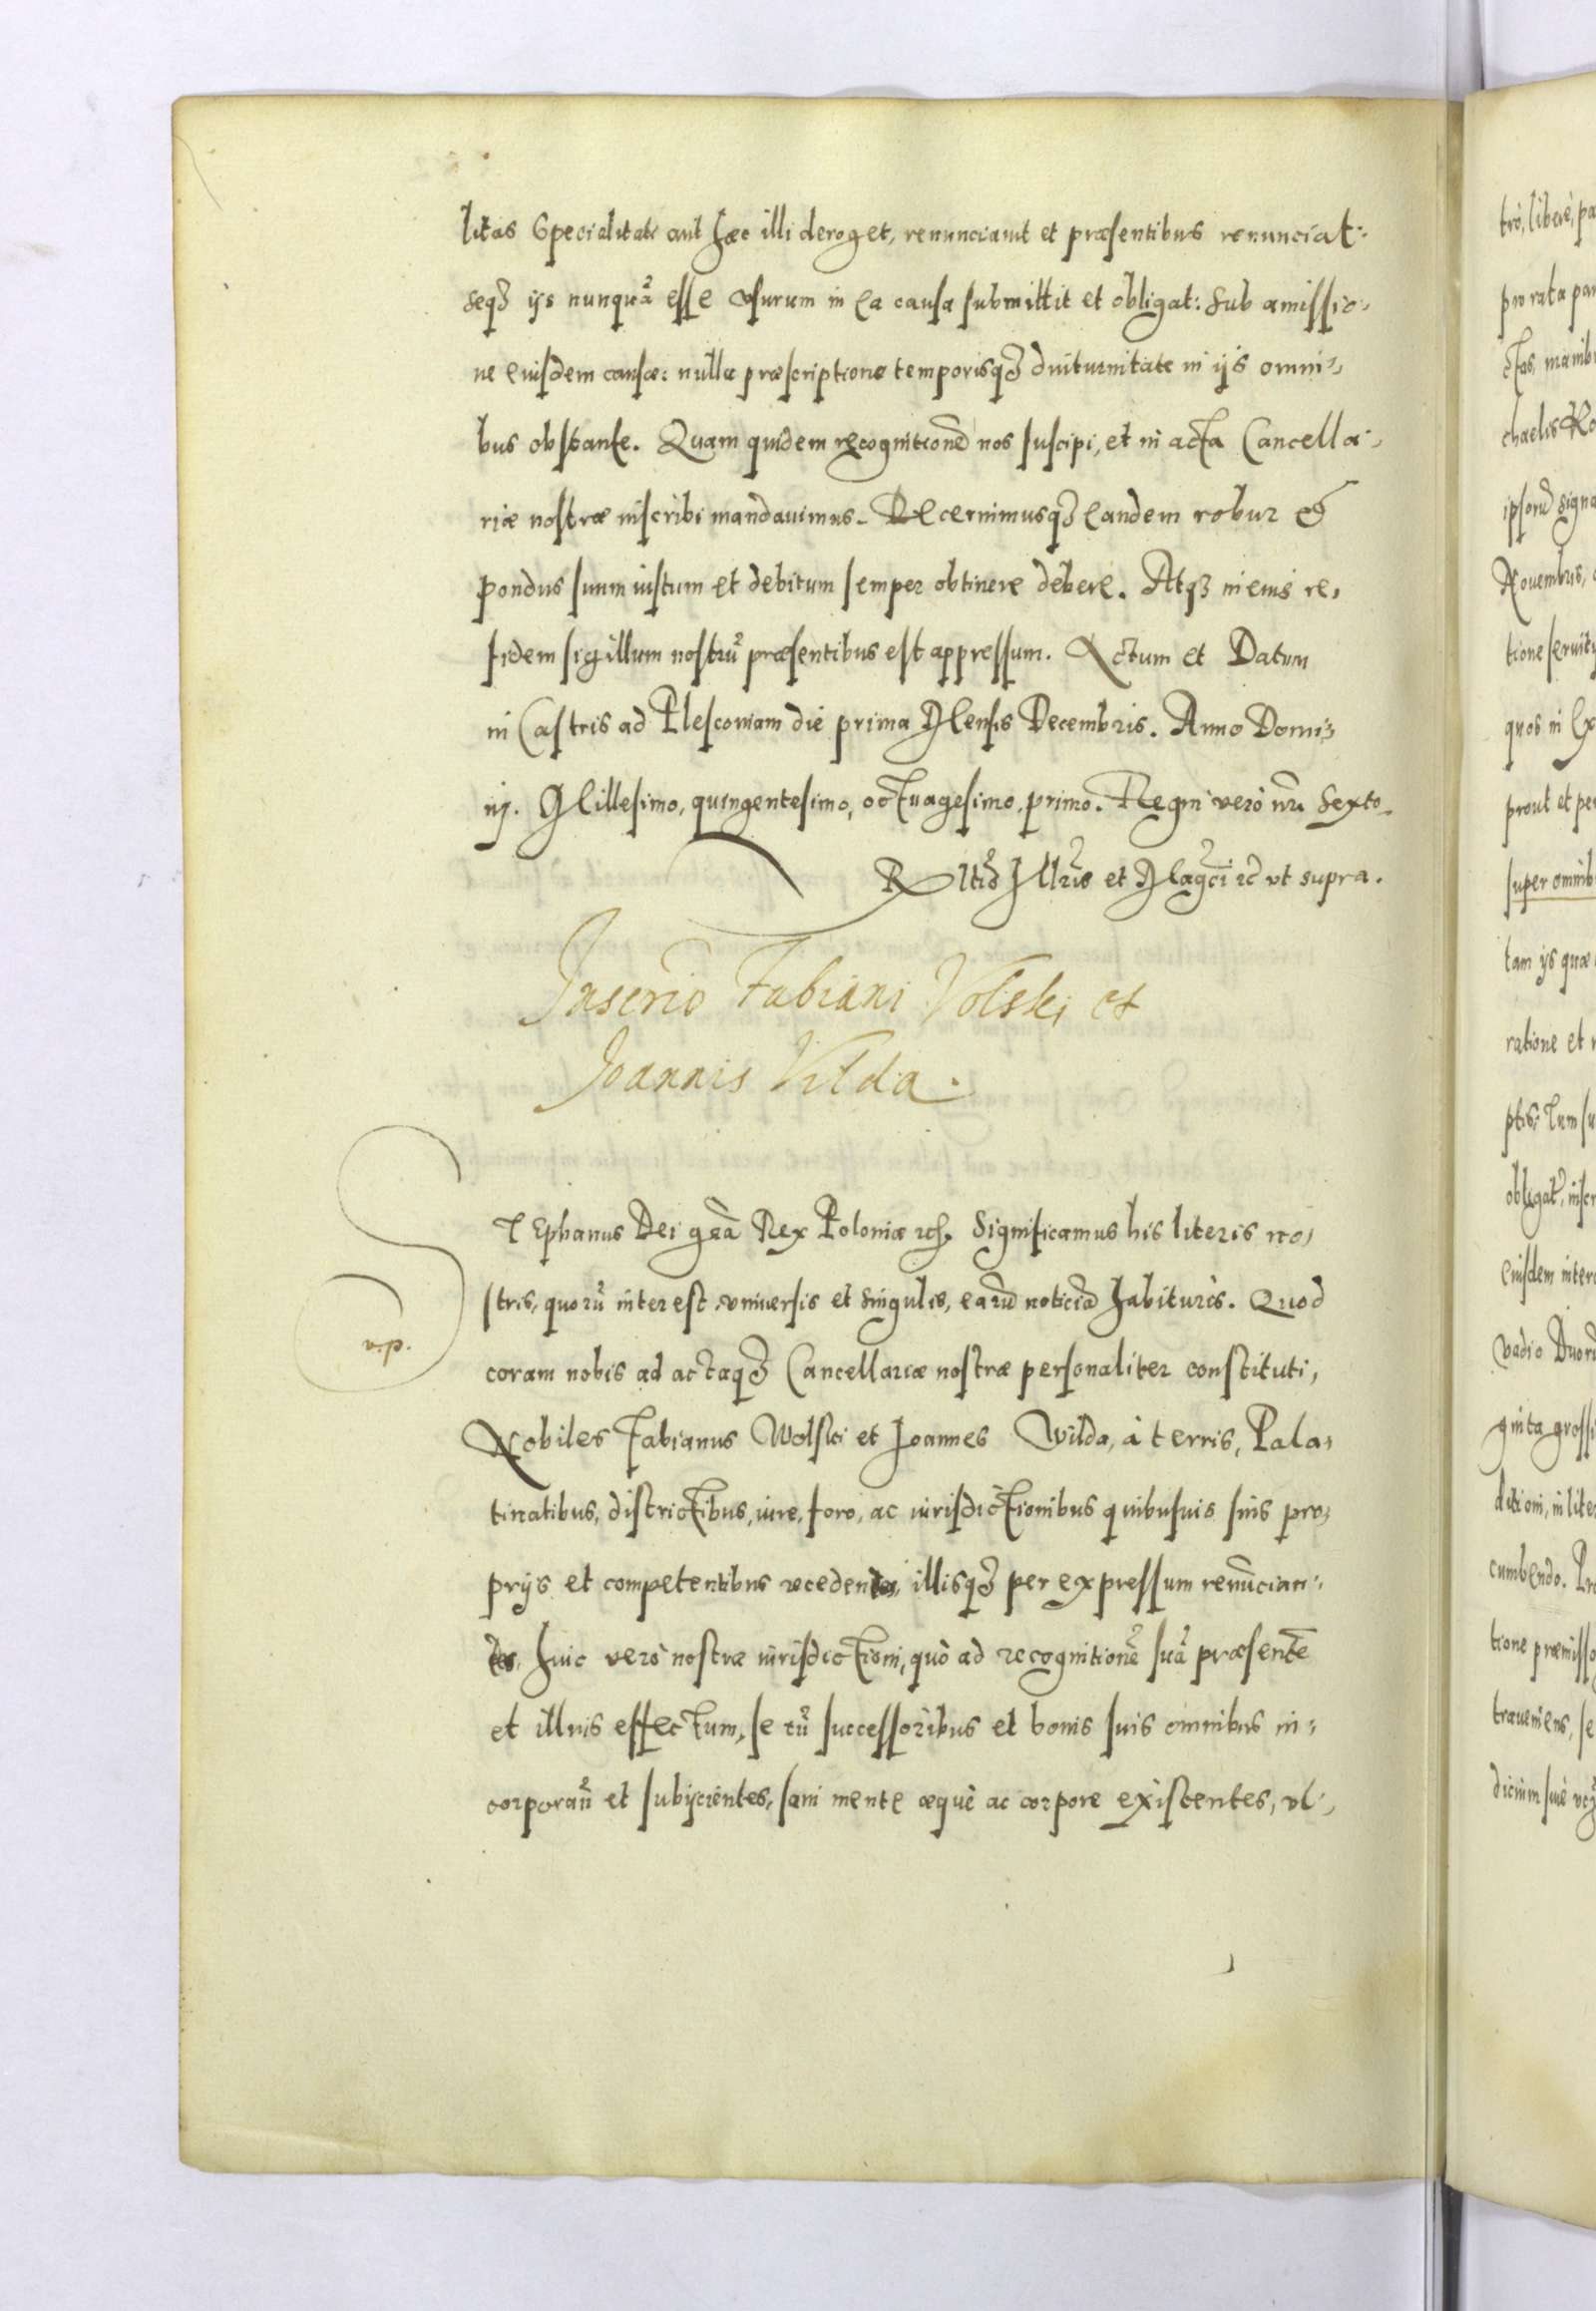 litas Specialitati aut hæc illi deroget, renunciauit et præsentibus renunciat:
seqȝ ijs nunquã esse vsurum in ea causa submittit et obligat: sub amissio,
ne eiusdem causæ: nulla præscriptione temporisqȝ diuturnitate in ijs omni,
bus obstante. Quam quidem recognitionẽ nos suscipi, et in acta Cancella,
riæ nostræ inscribi mandauimus. Decernimusqȝ eandem robur et
pondus suum iustum et debitum semper obtinere debere. Atqȝ in eius re,
fidem sigillum nostrũ præsentibus est appressum. Actum et Datum
in Castris ad Plescouiam die prima Mensis Decembris. Anno Domi,
nj. Millesimo, quingentesimo, octuagesimo, primo. Regni verò nri Sexto.
Rltio Illris et Magci rc vt supra.
Inscrio Fabiani Volski et
Joannis Vilda.
STEphanus Dei grã Rex Poloniæ rc. Significamus his literis no,
stris, quorũ interest, vniuersis et singulis, earũ noticiã habituris. Quod
v.p.
coram nobis ad actaqȝ Cancellariæ nostræ personaliter constituti,
Nobiles Fabianus Wolski et Joannes Wilda, à terris, Pala,
tinatibus, districtibus, iure, foro, ac iurisdictionibus quibusuis suis pro,
prijs et competentibus recedentes, illisqȝ per expressum renũcian,
tes, huic verò nostræ iurisdictioni, quò ad recognitionẽ suã præsentẽ
et illius effectum, se cũ successoribus et bonis suis omnibus in,
corporañ et subijcientes, sani mente æquè ac corpore existentes, vl,
tro, libere, pa
pro rata par
chaelis Ko
ipsorũ signa
Nouembris,
tione seruitu
quos in Ex
prout et per
super omnib
tam ijs quæ
ratione et
ptis, tum su
eiusdem inter
Vadio Duorũ
ginta grossi
ditioni, in lite
cumbendo. Pro
tione præmisso
traueniens, se